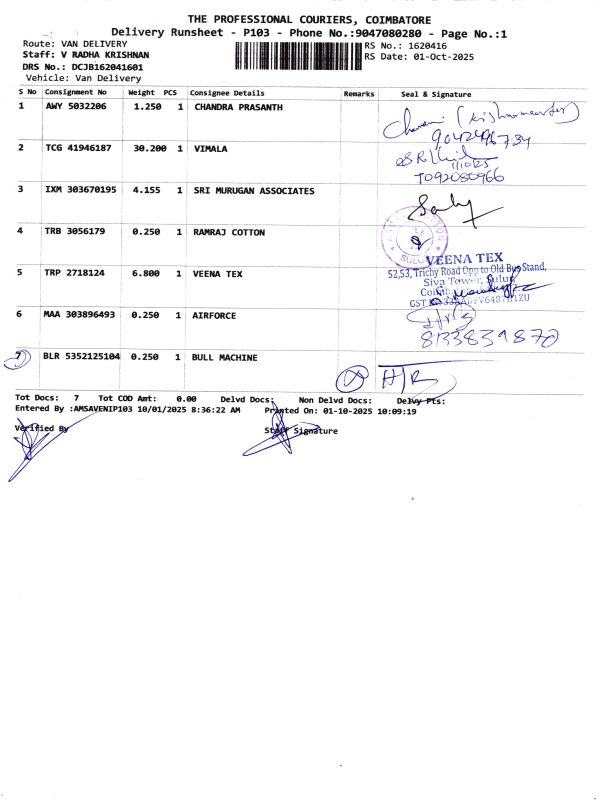 THE PROFESSIONAL COURIERS, COIMBATORE
Delivery Runsheet - P103 - Phone No.:9047080280 - Page No.:1
Route: VAN DELIVERY
Staff: V RADHA KRISHNAN
DRS No.: DCJB162041601
Vehicle: Van Delivery
RS No.: 1620416
RS Date: 01-Oct-2025
S No Consignment No Weight PCS Consignee Details Remarks Seal & Signature
1 AWY 5032206 1.250 1 CHANDRA PRASANTH
2 TCG 41946187 30.200 1 VIMALA
1/10/25
3 IXM 303670195 4.155 1 SRI MURUGAN ASSOCIATES
4 TRB 3056179 0.250 1 RAMRAJ COTTON
SULUR
VEENA TEX
52,53, Trichy Road Opp to Old Bus Stand,
Siva Tower, Sulur
5 TRP 2718124 6.800 1 VEENA TEX
6 MAA 303896493 0.250 1 AIRFORCE
8133839870
7 BLR 5352125104 0.250 1 BULL MACHINE
Tot Docs: 7 Tot COD Amt: 0.00 Delvd Docs: Non Delvd Docs: Delvy Pts:
Entered By :AMSAVENIP103 10/01/2025 8:36:22 AM Printed On: 01-10-2025 10:09:19
Verified By
Staff Signature